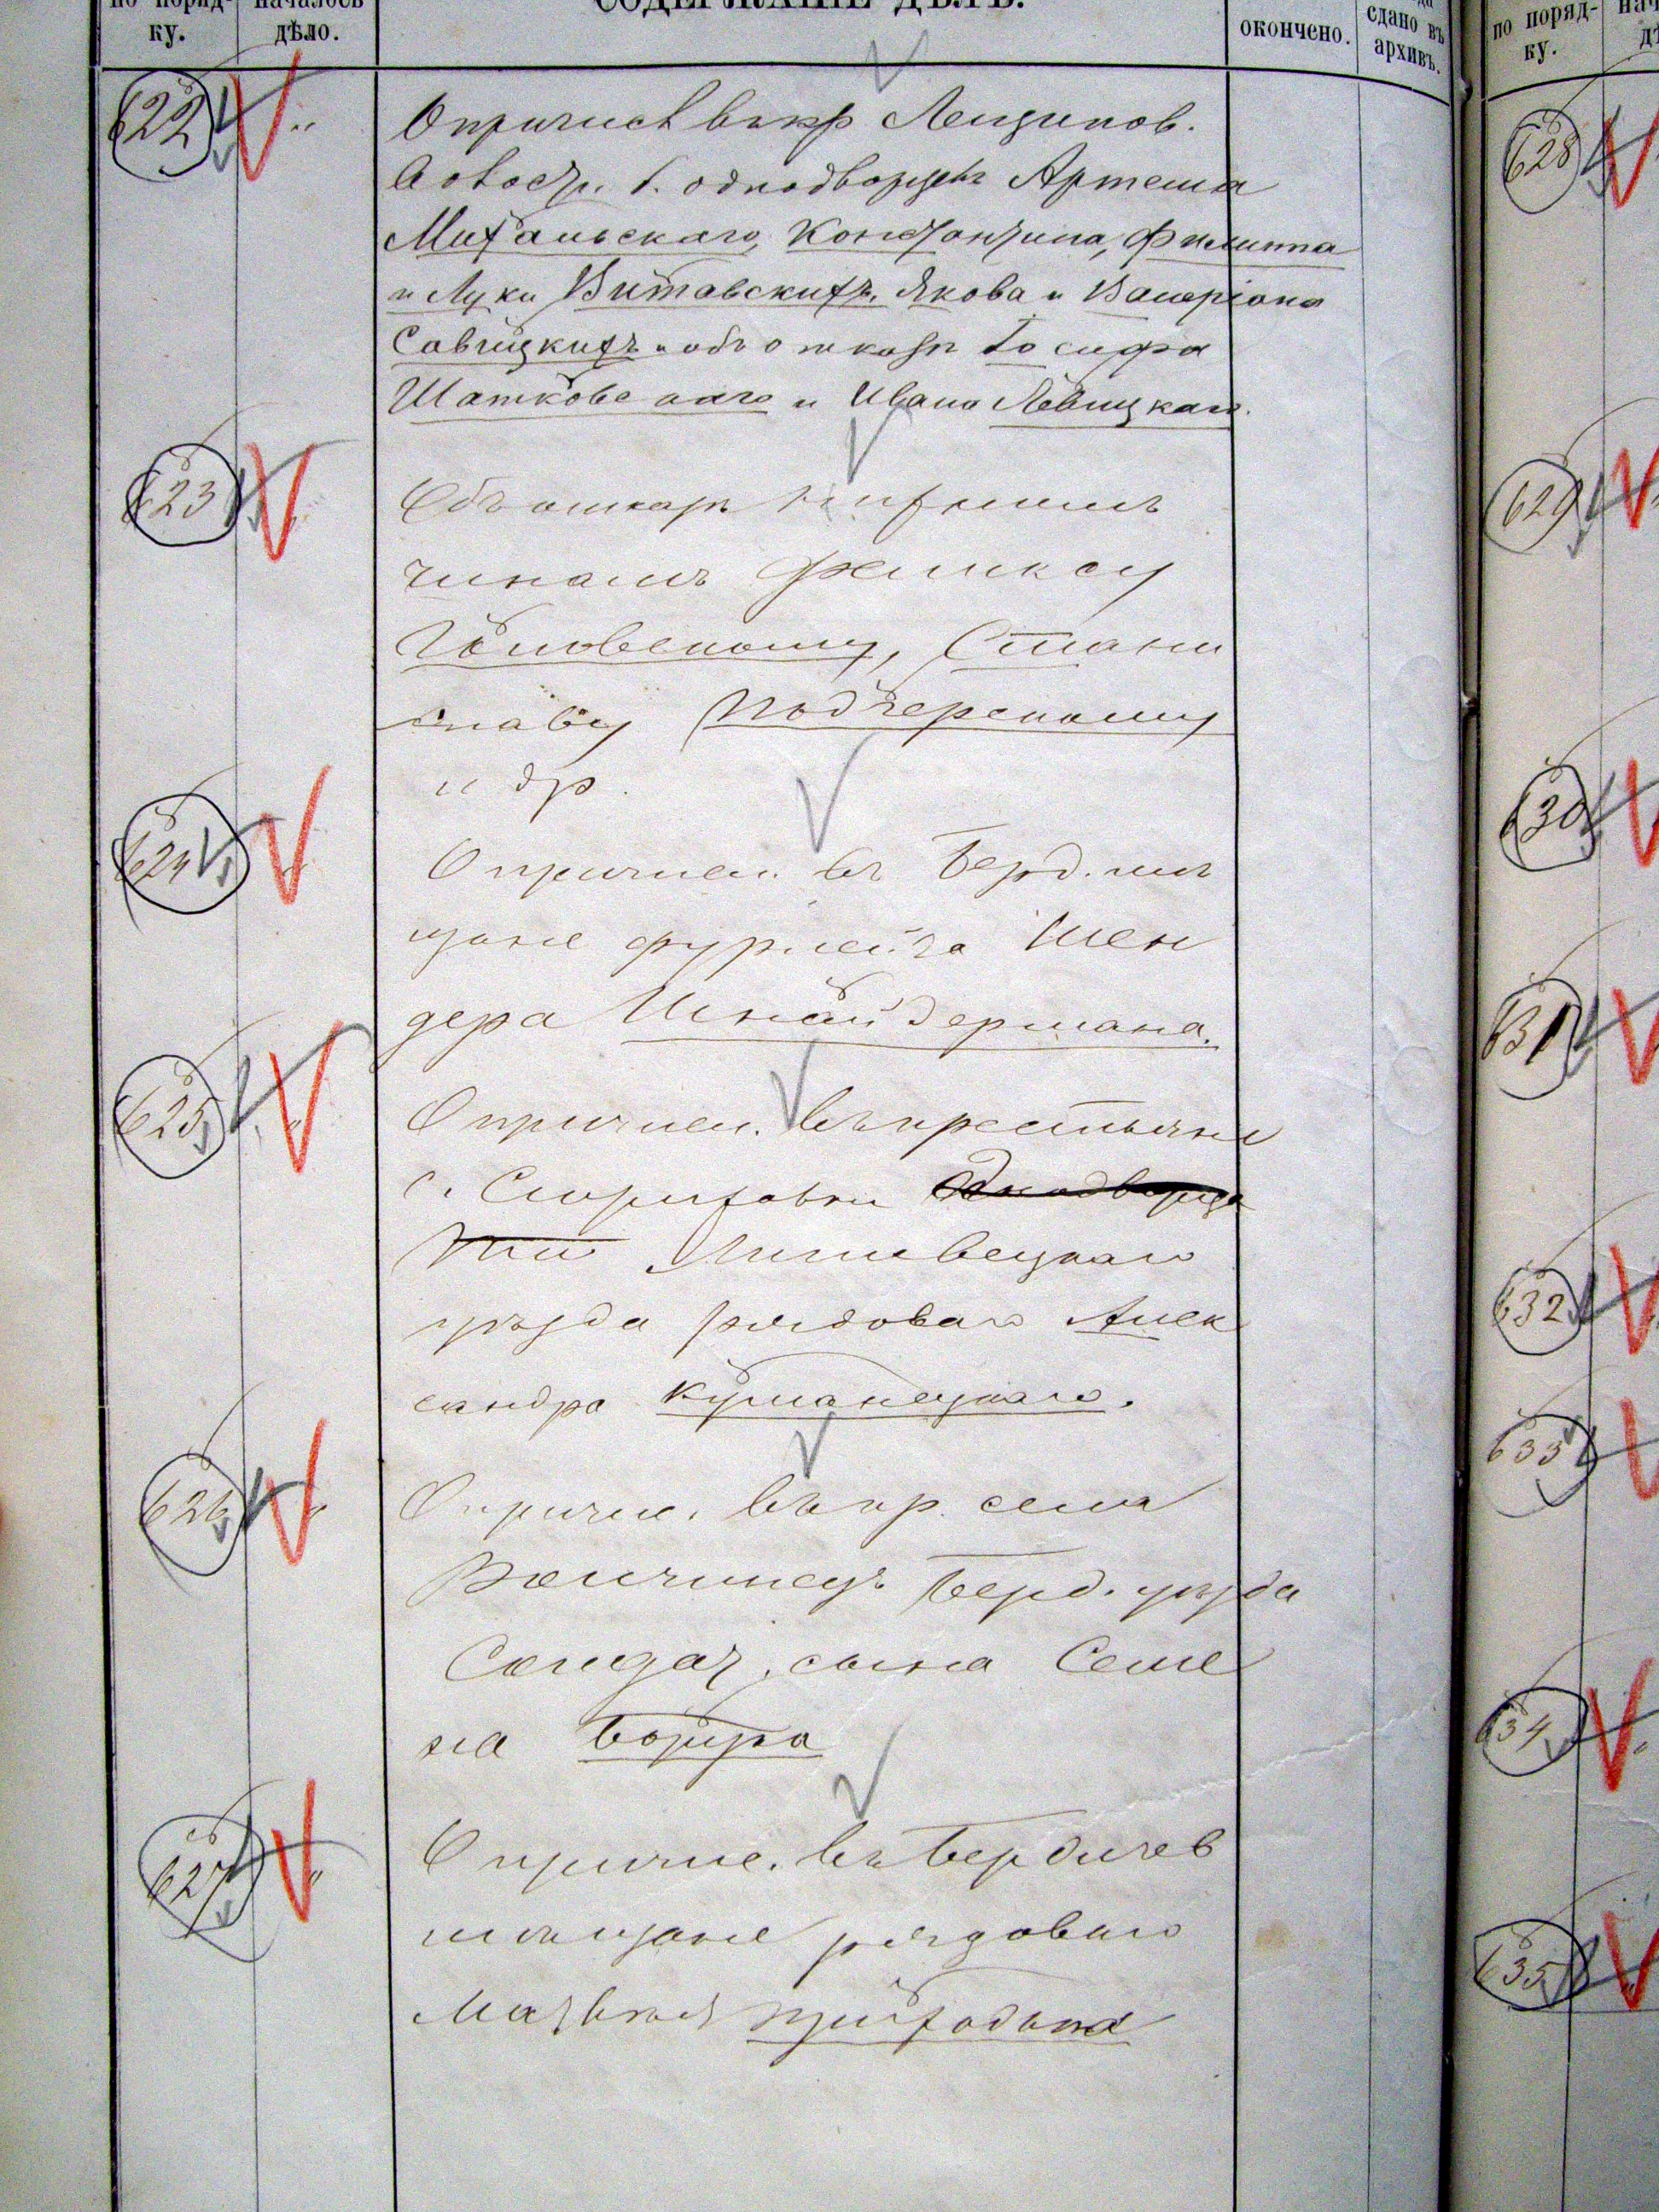 по поряд-
ку.
началось
дѣло.
СОДЕРЖАНІЕ ДѢЛЪ.
окончено.
сдано въ
архивъ.
по поряд-
ку.
622
О причисл въ кр Лещинов.
б. однодворцевъ Артема
Михальскаго, Константина, Филиппа
и Луки Витавскихъ, Якова и Валеріана
Савицкихъ и объ отказѣ Іосифа
Шатковскаго и Ивана Левицкаго.
623
Объ отказѣ нижнимъ
чинамъ Феликсу
Стани
славу Подчерскому
и др.
624
О причислен. въ Берд. мѣ
щане фурлейта Шен
дера Шнайдермана.
625
О причислен. въ крестьяне
с. однодворца
Липовецкаго
уѣзда рядоваго Алек
сандра Куманецкаго.
626
О причис. въ кр. села
Берд. уѣзда
Солдат. сына Семе
на
627
О причис. въ Бердичев
мѣщане рядоваго
Матвѣя
628
629
630
631
632
633
634
635